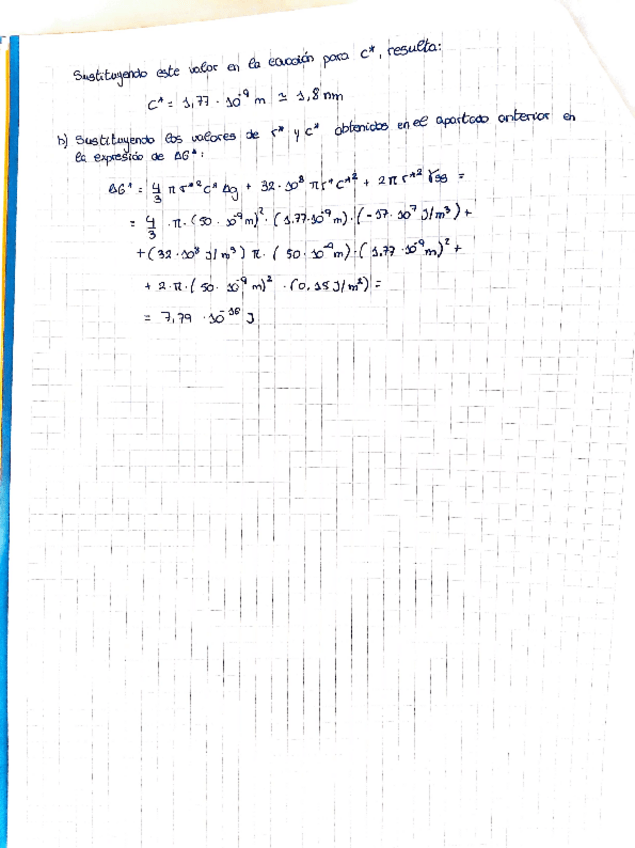 Sustituyendo este valor en la ecuación para c*, resulta:
c* = 1,77 · 10⁻⁹ m ≃ 1,8 nm
b) Sustituyendo los valores de r* y c* obtenidos en el apartado anterior en
la expresión de ΔG*:
ΔG* = 4/3 π r*² c* Δg + 32 · 10⁸ π r* c*² + 2π r*² γsg =
= 4/3 · π · (50 · 10⁻⁹ m)² · (1,77·10⁻⁹ m) · (-17 · 10⁷ J/m³) +
+ (32 · 10⁸ J/m³) π · (50 · 10⁻⁹ m) · (1,77 · 10⁻⁹ m)² +
+ 2 · π · (50 · 10⁻⁹ m)² · (0,15 J/m²) =
= 7,79 · 10⁻¹⁶ J